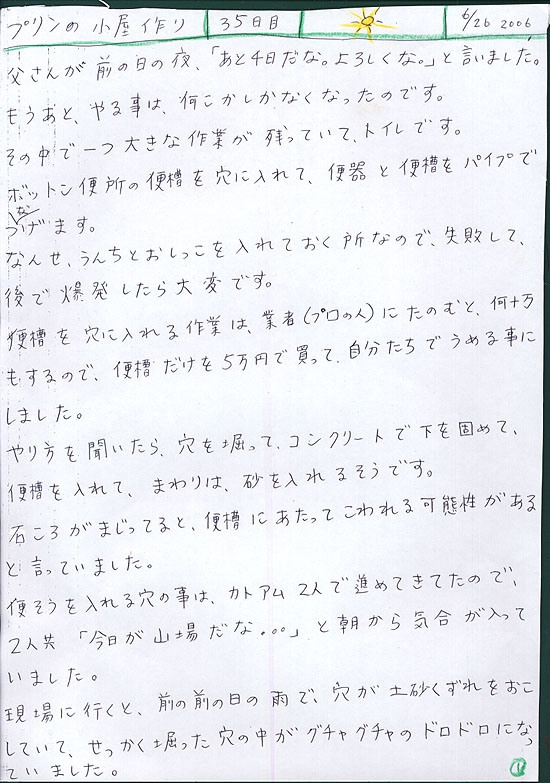 プリンの小屋作り 35日目 6/26 2006
父さんが前の日の夜、「あと4日だな。よろしくな。」と言いました。
もうあと、やる事は、何こかしかなくなったのです。
その中で一つ大きな作業が残っていて、トイレです。
ボットン便所の便槽を穴に入れて、便器と便槽をパイプで
つなげます。
なんせ、うんちとおしっこを入れておく所なので、失敗して、
後で爆発したら大変です。
便槽を穴に入れる作業は、業者(プロの人)にたのむと、何十万
もするので、便槽だけを5万円で買って、自分たちでうめる事に
しました。
やり方を聞いたら、穴を堀って、コンクリートで下を固めて、
便槽を入れて、まわりは、砂を入れるそうです。
石ころがまじってると、便槽にあたってこわれる可態性がある
と言っていました。
便そうを入れる穴の事は、カトアム2人で進めてきてたので、
2人共「今日が山場だな。。。」と朝から気合が入って
いました。
現場に行くと、前の前の日の雨で、穴が土砂くずれをおこ
していて、せっかく堀った穴の中がグチャグチャのドロドロになっ
ていました。
1